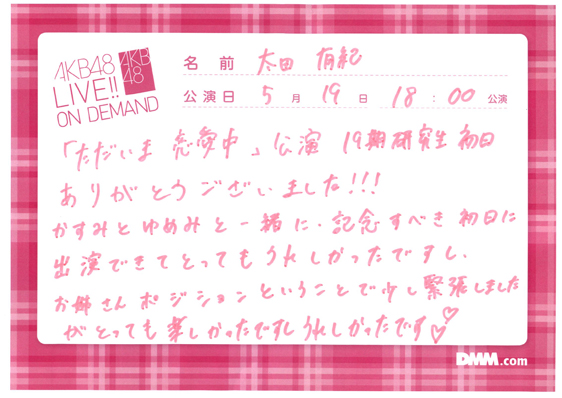 AKB48
LIVE!!
ON DEMAND
AKB
48
名前 太田 有紀
公演日 5月19日 18:00 公演
「ただいま 恋愛中」公演 19期研究生 初日
ありがとうございました!!!
かすみとゆめみと一緒に、記念すべき初日に
出演できてとってもうれしかったですし、
お姉さんポジションということで少し緊張しました
がとっても楽しかったですしうれしかったです♡♡
DMM.com